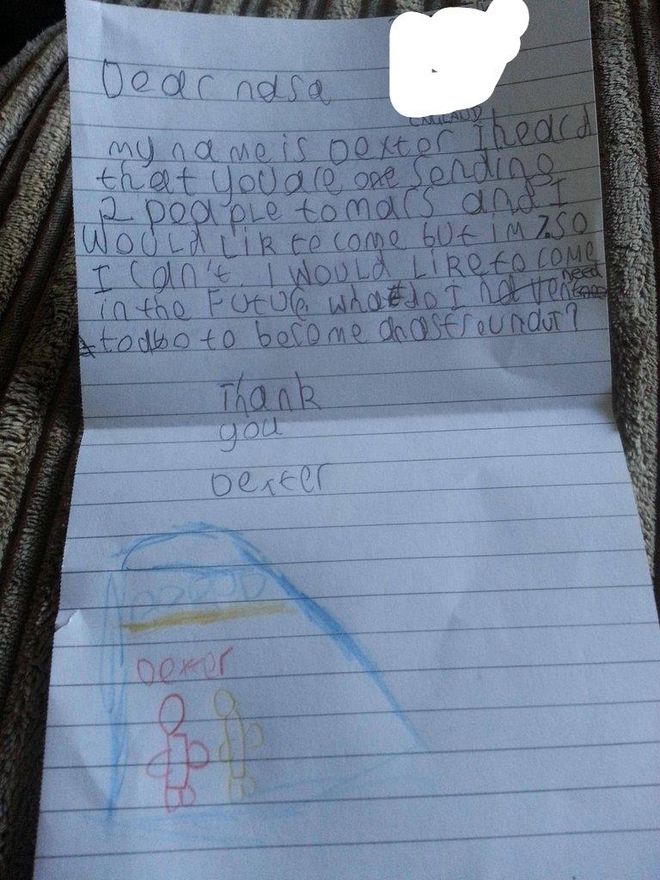 Dear nasa
ENGLAND
my name is Dexter I heard
that you are one sending
2 peaple to mars and I
WOULD LIKE to come but im 7 so
I can't. I WOULD LIKE to COME
need
in the FUtUre. what do I have
to do to become an astrounaut?
Thank
you
Dexter
Dexter